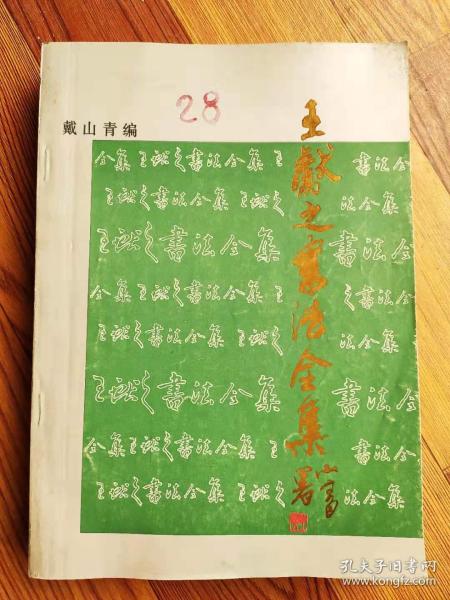 28
戴山青编
王献之書法全集
署
全集 王献之書法全集 王 書法全集
王献之書法全集 王献之 法全集
王献之書法全集 書法全集
全集 王献之書法全集 王 之書法全集
王献之書法全集 王献之 法全集
王献之書法全集 書法全集
全集 王献之書法全集 王 書法全集
王献之書法全集 王献之 法全集
孔夫子旧书网
www.kongfz.com